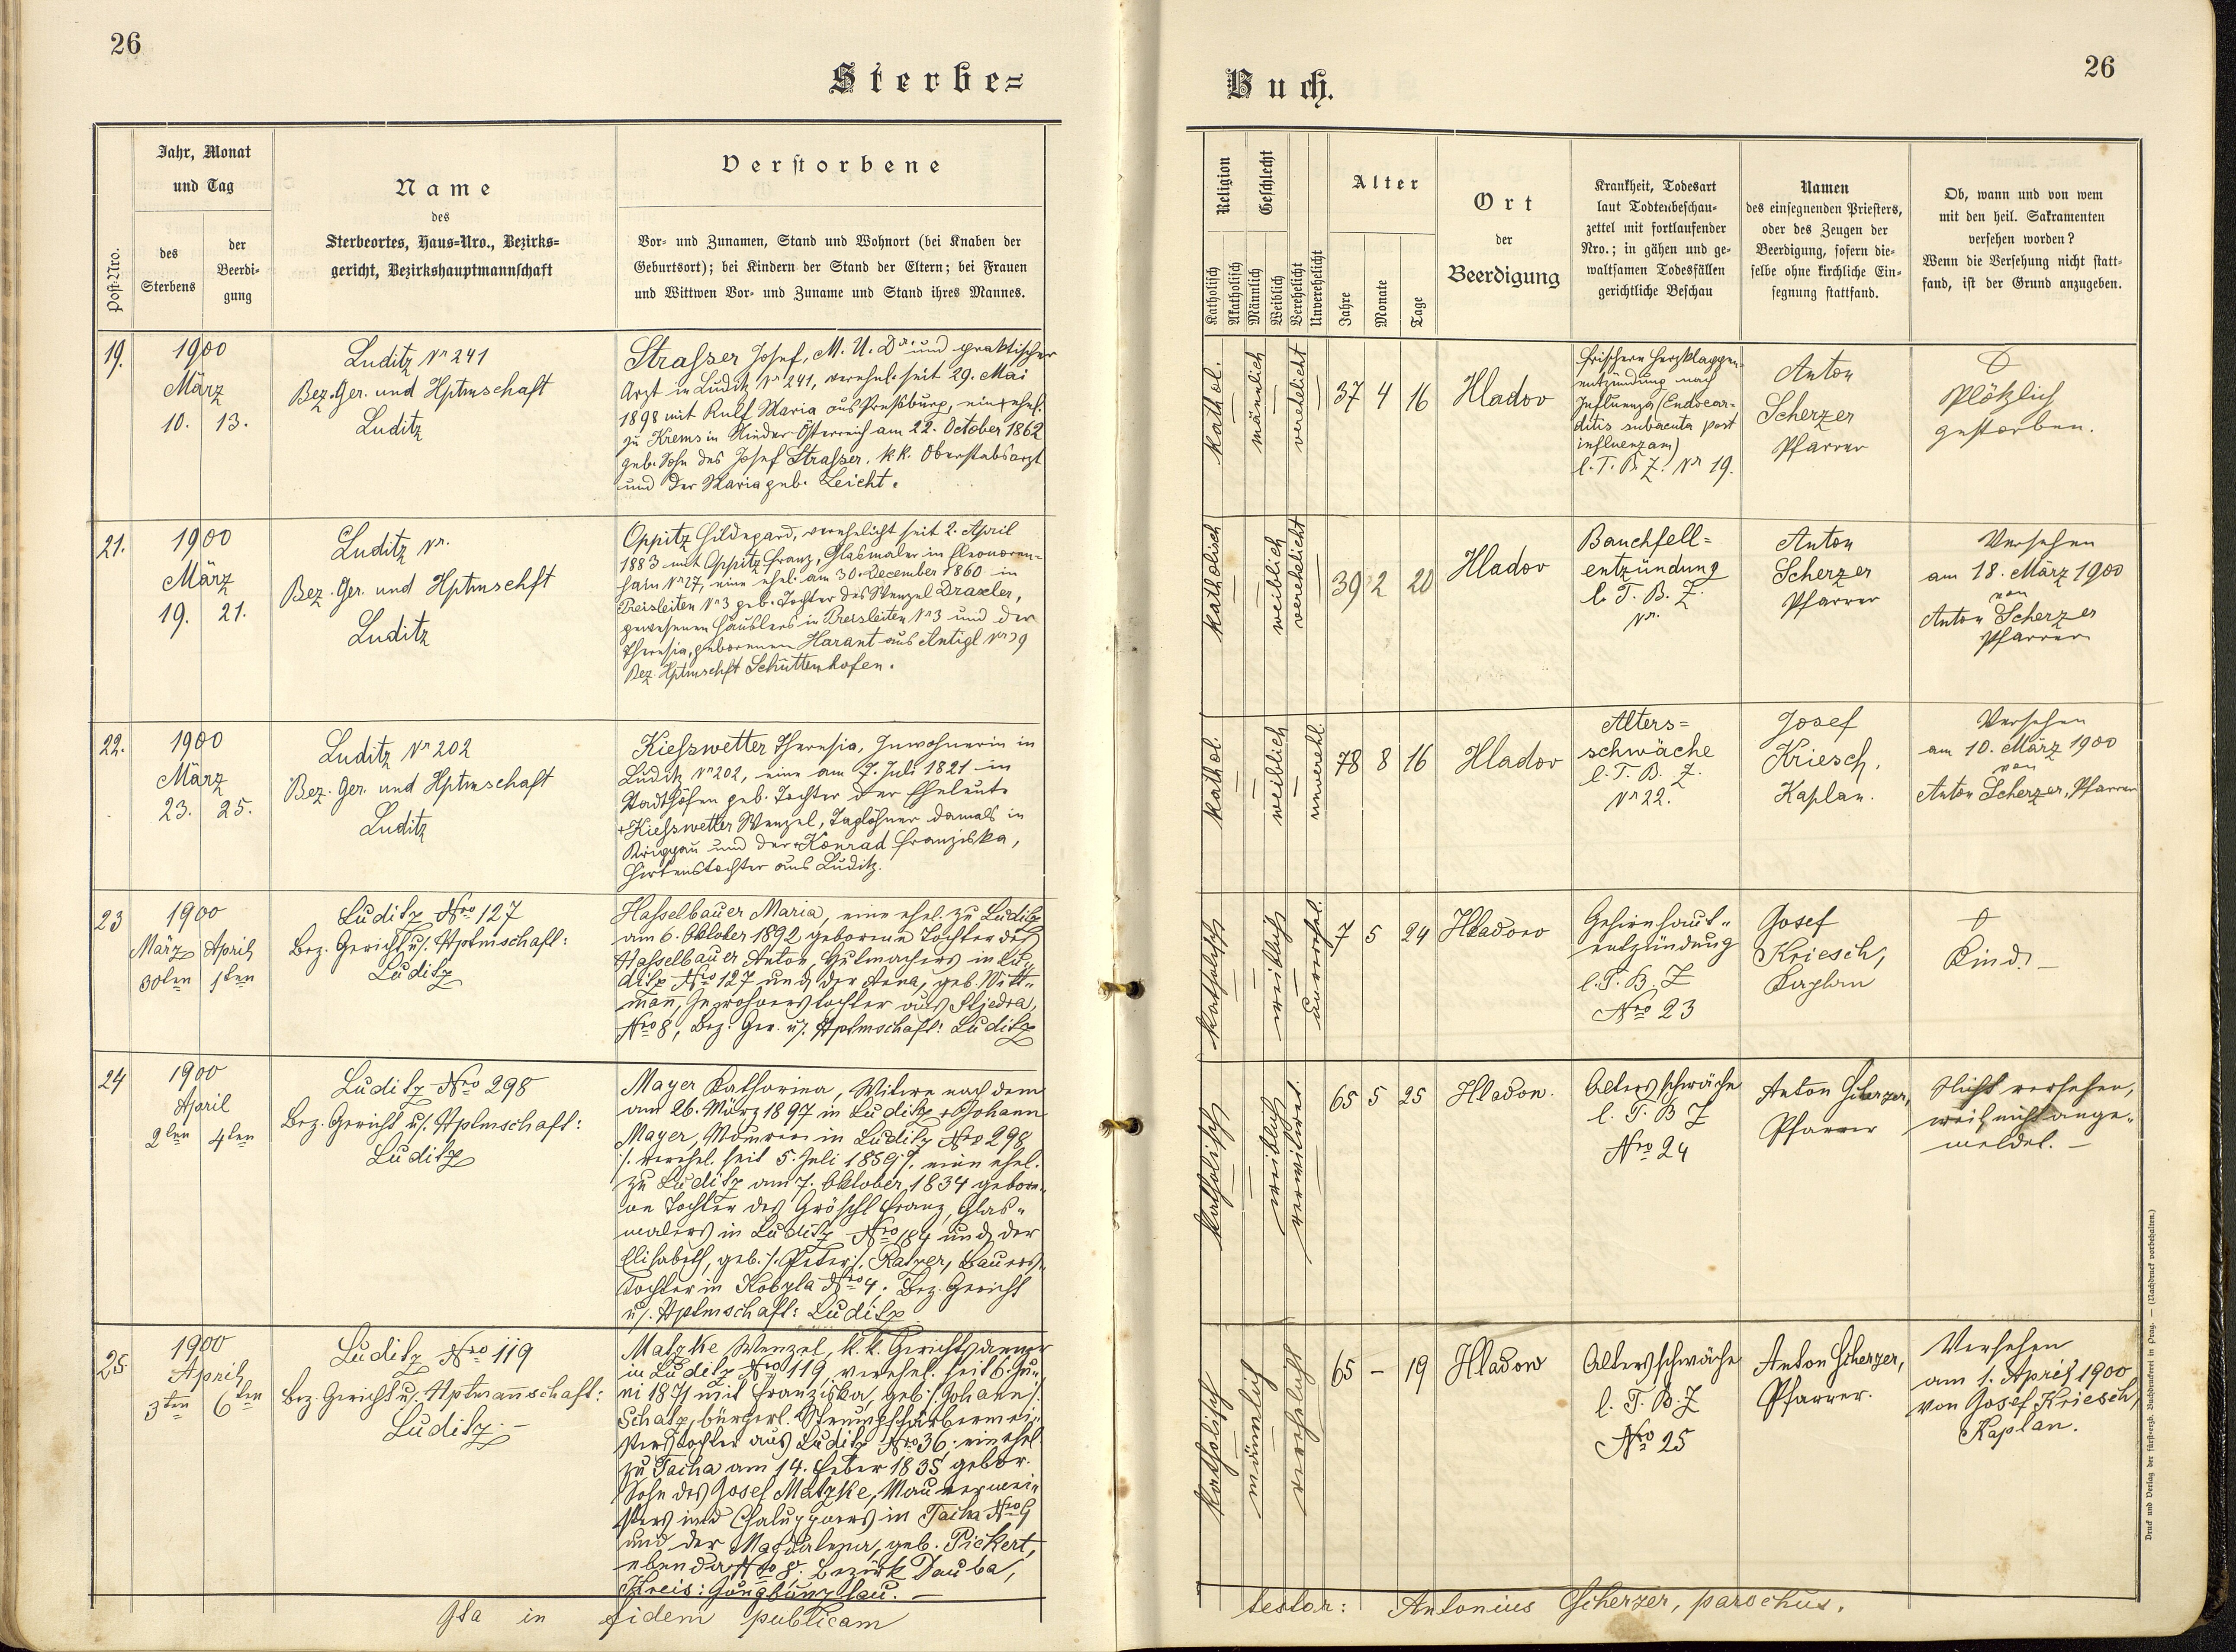 26
26
Sterbe=
Buch.
Post-Nro.
Jahr, Monat
und Tag
des
Sterbens
der
Beerdi-
gung
Name
des
Sterbeortes, Haus-Nro., Bezirks=
gericht, Bezirkshauptmannschaft
Verstorbene
Vor- und Zunamen, Stand und Wohnort (bei Knaben der
Geburtsort); bei Kindern der Stand der Eltern; bei Frauen
und Wittwen Vor- und Zuname und Stand ihres Mannes.
Religion
Katholisch
Akatholisch
Geschlecht
Männlich
Weiblich
Verehelicht
Unverehelicht
Alter
Jahre
Monate
Tage
Ort
der
Beerdigung
Krankheit, Todesart
laut Todtenbeschau-
zettel mit fortlaufender
Nro.; in gähen und ge-
waltsamen Todesfällen
gerichtliche Beschau
Namen
des einsegnenden Priesters,
oder des Zeugen der
Beerdigung, sofern die-
selbe ohne kirchliche Ein-
segnung stattfand.
Ob, wann und von wem
mit den heil. Sakramenten
versehen worden?
Wenn die Versehung nicht statt-
fand, ist der Grund anzugeben.
19.
1900
März
10. 13.
Luditz Nr 241
Bez. Ger. und Hptmschaft
Luditz
Strasser Josef, M. U. Dr. und praktischer
Arzt in Luditz Nr 241, verehel. seit 29. Mai
1898 mit Rulf Maria aus Pressburg, ein ehel.
zu Krems in Nieder-Österreich am 22. October 1862
geb. Sohn des Josef Strasser, kk. Oberstabsarzt
und der Maria geb. Leicht.
kathol.
männlich
verehelicht
37 4 16
Hladov
frischern Herzklappen-
entzündung nach
Influenza (Endocar-
ditis subacuta post
influenzam)
l. T. B. Z. Nr 19.
Anton
Scherzer
Pfarrer
Plötzlich
gestorben.
21.
1900
März
19. 21.
Luditz Nr.
Bez. Ger. und Hptmschft
Luditz
Oppitz Hildegard, verehelicht seit 2. April
1883 mit Oppitz Franz, Glasmaler in Eleonoren-
hain Nr 27, eine ehel. am 30. December 1860 in
Preisleiten Nr 3 geb. Tochter des Wenzel Draxler,
gewesenen Häuslers in Preisleiten Nr 3 und der
Theresia, geborenen Harant aus Antigl Nr 29
Bez. Hptmschft Schüttenhofen.
katholisch
weiblich
verehelicht
39 2 20
Hladov
Bauchfell=
entzündung
l. T. B. Z.
Nr.
Anton
Scherzer
Pfarrer
Versehen
am 18. März 1900
von
Anton Scherzer
Pfarrer
22.
1900
März
23. 25.
Luditz Nr 202
Bez. Ger. und Hptmschaft
Luditz
Kiesswetter Theresia, Inwohnerin in
Luditz Nr 202, eine am 7. Juli 1821 in
Stadthöfen geb. Tochter der Eheleute
+Kiesswetter Wenzel, Taglöhner damals in
und der +Konrad Franziska,
Hirtenstochter aus Luditz.
kathol.
weiblich
unverehl.
78 8 16
Hladov
Alters=
schwäche
l. T. B. Z.
Nr 22.
Josef
Kriesch,
Kaplan.
Versehen
am 10. März 1900
von
Anton Scherzer, Pfarrer
23
1900
März April
30ten 1ten
Luditz Nro 127
Bez. Gericht u. Hptmschaft:
Luditz
Hasselbauer Maria, eine ehel. zu Luditz
am 6. Oktober 1892 geborene Tochter des
Hasselbauer Anton, Hutmachers in Lu-
ditz Nro 127 und der Anna, geb. Witt-
mann, Inwohnerstochter aus Stiedra,
Nro 8, Bez. Ger. u. Hptmschaft: Luditz
katholisch
weiblich
unverehel.
7 5 24
Hladov
Gehirnhaut-
entzündung
l. T. B. Z
Nro 23
Josef
Kriesch,
Kaplan
Kind. —
24
1900
April
2ten 4ten
Luditz Nro 298
Bez. Gericht u. Hptmschaft:
Luditz
Mayer Katharina, Witwe nach dem
am 26. März 1897 in Luditz + Johann
Mayer, Maurer in Luditz Nro 298
/. verehel. seit 5. Juli 1859 ./. eine ehel.
zu Luditz am 7. Oktober 1834 gebore-
ne Tochter des Gröschl Franz, Glas-
malers in Luditz Nro 184 und der
Elisabeth, geb. /. Peter /. Ratzer, Bauers-
tochter in Kobyla Nro 4. Bez. Gericht
u. Hptmschaft: Luditz
katholisch
weiblich
verwitwet.
65 5 25
Hladow.
Altersschwäche
l. T. B Z
Nro 24
Anton Scherzer,
Pfarrer
Nicht versehen,
weil nicht ange-
meldet. —
25.
1900
April
3ten 6ten
Luditz Nro 119
Bez. Gericht u. Hptmannschaft:
Luditz. —
Matzke Wenzel, k. k. Gerichtsdiener
in Luditz Nro 119, verehel. seit 6. Ju-
ni 1871 mit Franziska, geb. /. Johann /.
Schatz, bürgerl. Strumpffärbermei-
sterstochter aus Luditz Nro 36; ein ehel.
zu Tacha am 14. Feber 1835 gebor.
Sohn des Josef Matzke, Maurermei-
sters und Chaluppners in Tacha Nro 9
und der Magdalena, geb. Pickert,
ebenda Nro 8. Bezirk Dauba,
Kreis: Jungbunzlau. —
katholisch
männlich
verehelicht
65 — 19
Hladow
Altersschwäche
l. T. B. Z
Nro 25
Anton Scherzer,
Pfarrer.
Versehen
am 1. April 1900
von Josef Kriesch,
Kaplan.
Ita in fidem publicam
testor: Antonius Scherzer, parochus.
Druck und Verlag der fürst-erzb. Buchdruckerei in Prag. — (Nachdruck vorbehalten.)